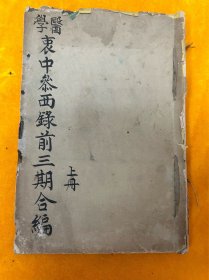 醫學衷中參西錄前三期合編
上冊